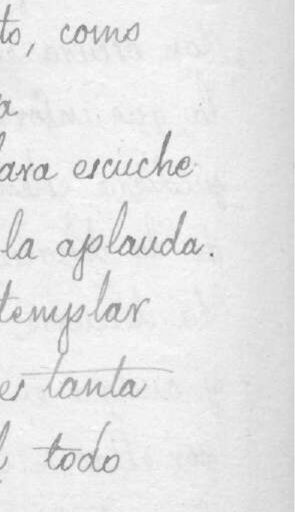 to, como
a
lara escuche
la aplauda.
templar
es tanta
l todo